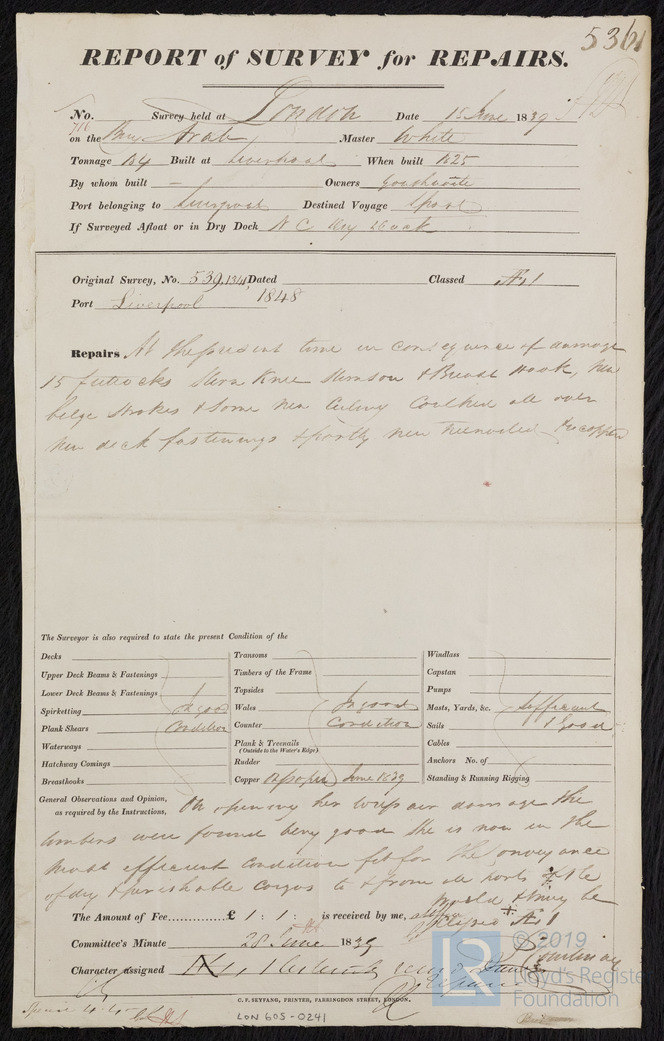 5361
REPORT of SURVEY for REPAIRS.
No. 710 Survey held at London Date 15 June 1839
on the Brig Arab Master White
Tonnage 184 Built at Liverpool When built 1825
By whom built — Owners
Port belonging to Liverpool Destined Voyage Spain
If Surveyed Afloat or in Dry Dock
Original Survey, No. 539, 1341 Dated Classed Æ1
Port Liverpool 1848
Repairs At the present time in consequence of damage
15 futtocks Stern Knee Stemson & Breast Hook, New
bilge Strakes & Some New Ceiling Caulked all over
New deck fastenings & partly new treenailed Recoppered
The Surveyor is also required to state the present Condition of the
Decks
Upper Deck Beams & Fastenings
Lower Deck Beams & Fastenings
Spirketting In good
Plank Shears Condition
Waterways
Hatchway Comings
Breasthooks
Transoms
Timbers of the Frame
Topsides
Wales In good
Counter Condition
Plank & Treenails
(Outside to the Water's Edge)
Rudder
Copper June 1839
Windlass
Capstan
Pumps
Masts, Yards, &c. Sufficient
Sails & Good
Cables
Anchors No. of
Standing & Running Rigging
General Observations and Opinion, On opening her damage the
as required by the Instructions, timbers were found very good She is now in the
most efficient Condition fit for the conveyance
of dry & perishable Cargos to & from all ports of the
World & may be
The Amount of Fee............£ 1 : 1 : is received by me, Classed Æ1
Committee's Minute 28 June 1839
Character assigned
C. F. SEYFANG, PRINTER, FARRINGDON STREET, LONDON.
LON 605-0241
© 2019
LR
Lloyd's Register
Foundation